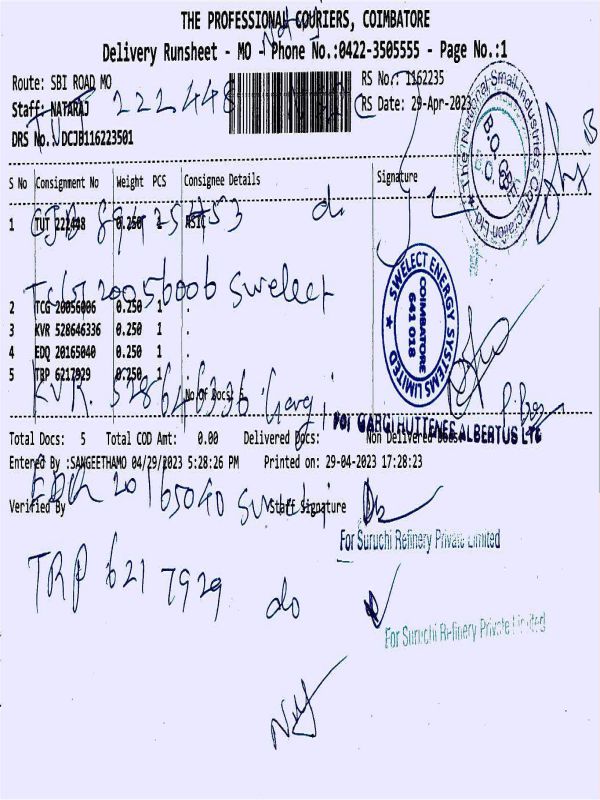 THE PROFESSIONAL COURIERS, COIMBATORE
Delivery Runsheet - MO - Phone No.:0422-3505555 - Page No.:1
Route: SBI ROAD MO
RS No.: 1162235
Staff: NATARAJ
222448 NSIC
RS Date: 29-Apr-2023
DRS No.: DCJB116223501
The National Small Industries Corporation Ltd
B.O. CBE
S No Consignment No Weight PCS Consignee Details Signature
1 TUT 222448 0.250 1 NSIC
do
TCG 20056006 Swelect
SWELECT ENERGY SYSTEMS LIMITED
COIMBATORE
641 018
2 TCG 20056006 0.250 1 .
3 KVR 528646336 0.250 1 .
4 EDQ 20165040 0.250 1 .
5 TRP 6217929 0.250 1 .
No Of Docs: 5
KVR 528646336 Gargi
For GARGI HUTTENES ALBERTUS LTD
Total Docs: 5 Total COD Amt: 0.00 Delivered Docs: Non Delivered Docs:
Entered By :SANGEETHAMO 04/29/2023 5:28:26 PM Printed on: 29-04-2023 17:28:23
20165040
Verified By Staff Signature
For Suruchi Refinery Private Limited
TRP 6217929 do
For Suruchi Refinery Private Limited